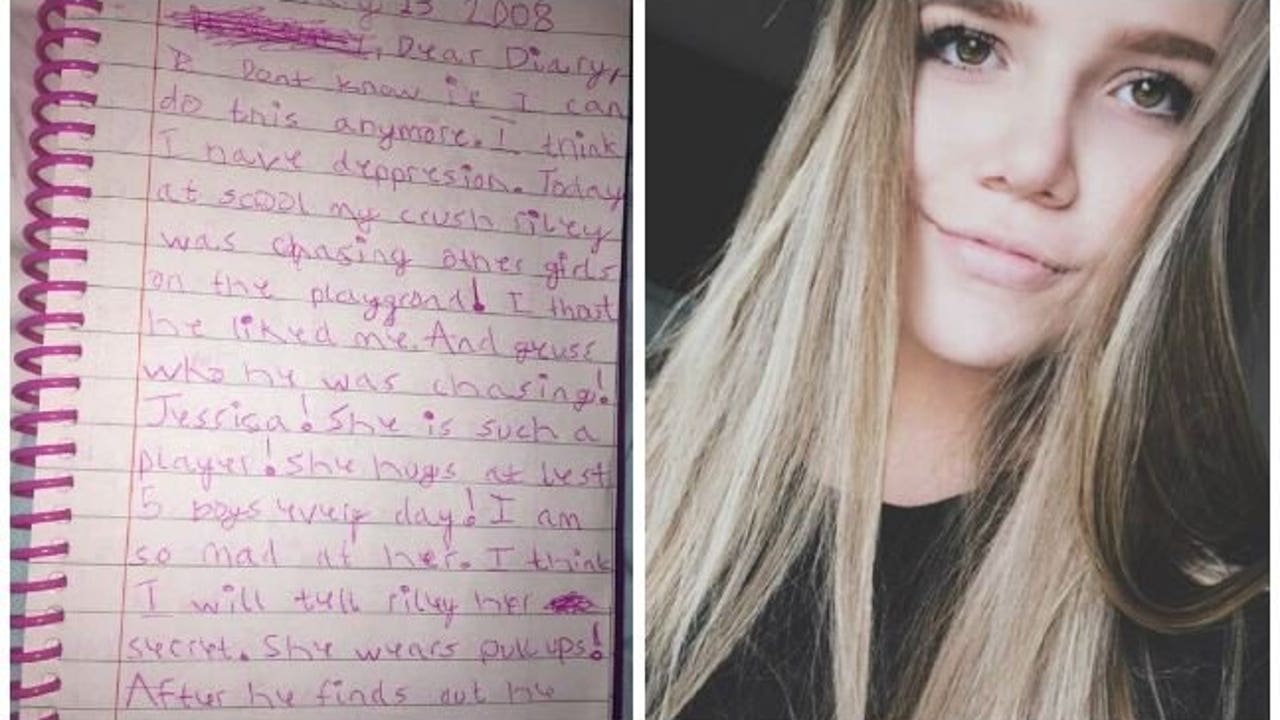 13 2008
Dear Diary,
I Dont know if I can
do this anymore. I think
I have deppresion. Today
at scool my crush riley
was chasing other girls
on the playgrond! I thaht
he liked me. And geuss
who he was chasing!
Jessica! She is such a
player! She hugs at lest
5 boys every day! I am
so mad at her. I think
I will tell riley her
secret. She wears pull ups!
After he finds out he